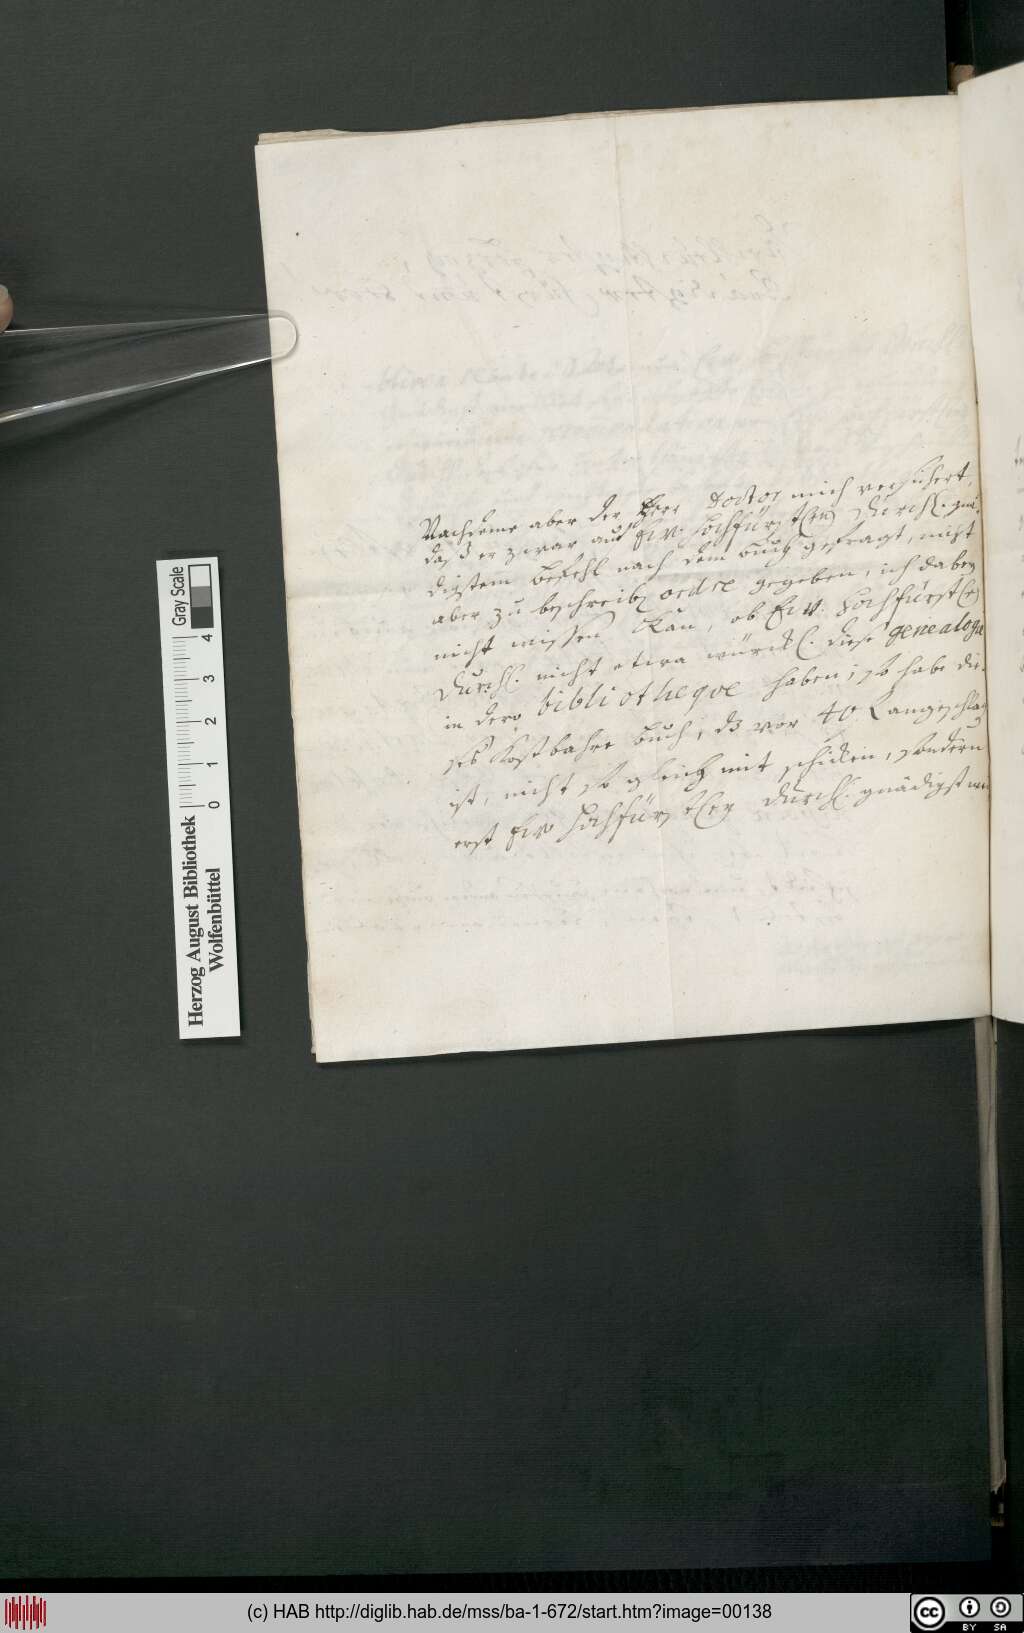 Nachdeme aber der Herr Doctor mich versichert,
daß er zwar auf Ew. Hochfürstl(en) Durchl. gnä-
digstem befehl nach dem buch gefragt, nicht
aber zu beschreib(en) ordre gegeben, ich dabey
nicht wissen kan, ob Ew. Hochfürstl(e)
Durchl. nicht etwa würckl. diese genealogia
in dero bibliotheqve haben; so habe die-
ses kostbahre buch, dz vor 40 angeschlag
ist, nicht so gleich mit schicken, sondern
erst Ew Hochfürstley Durchl. gnädigst
Herzog August Bibliothek
Wolfenbüttel
Gray Scale
0 1 2 3 4
(c) HAB http://diglib.hab.de/mss/ba-1-672/start.htm?image=00138
cc BY SA